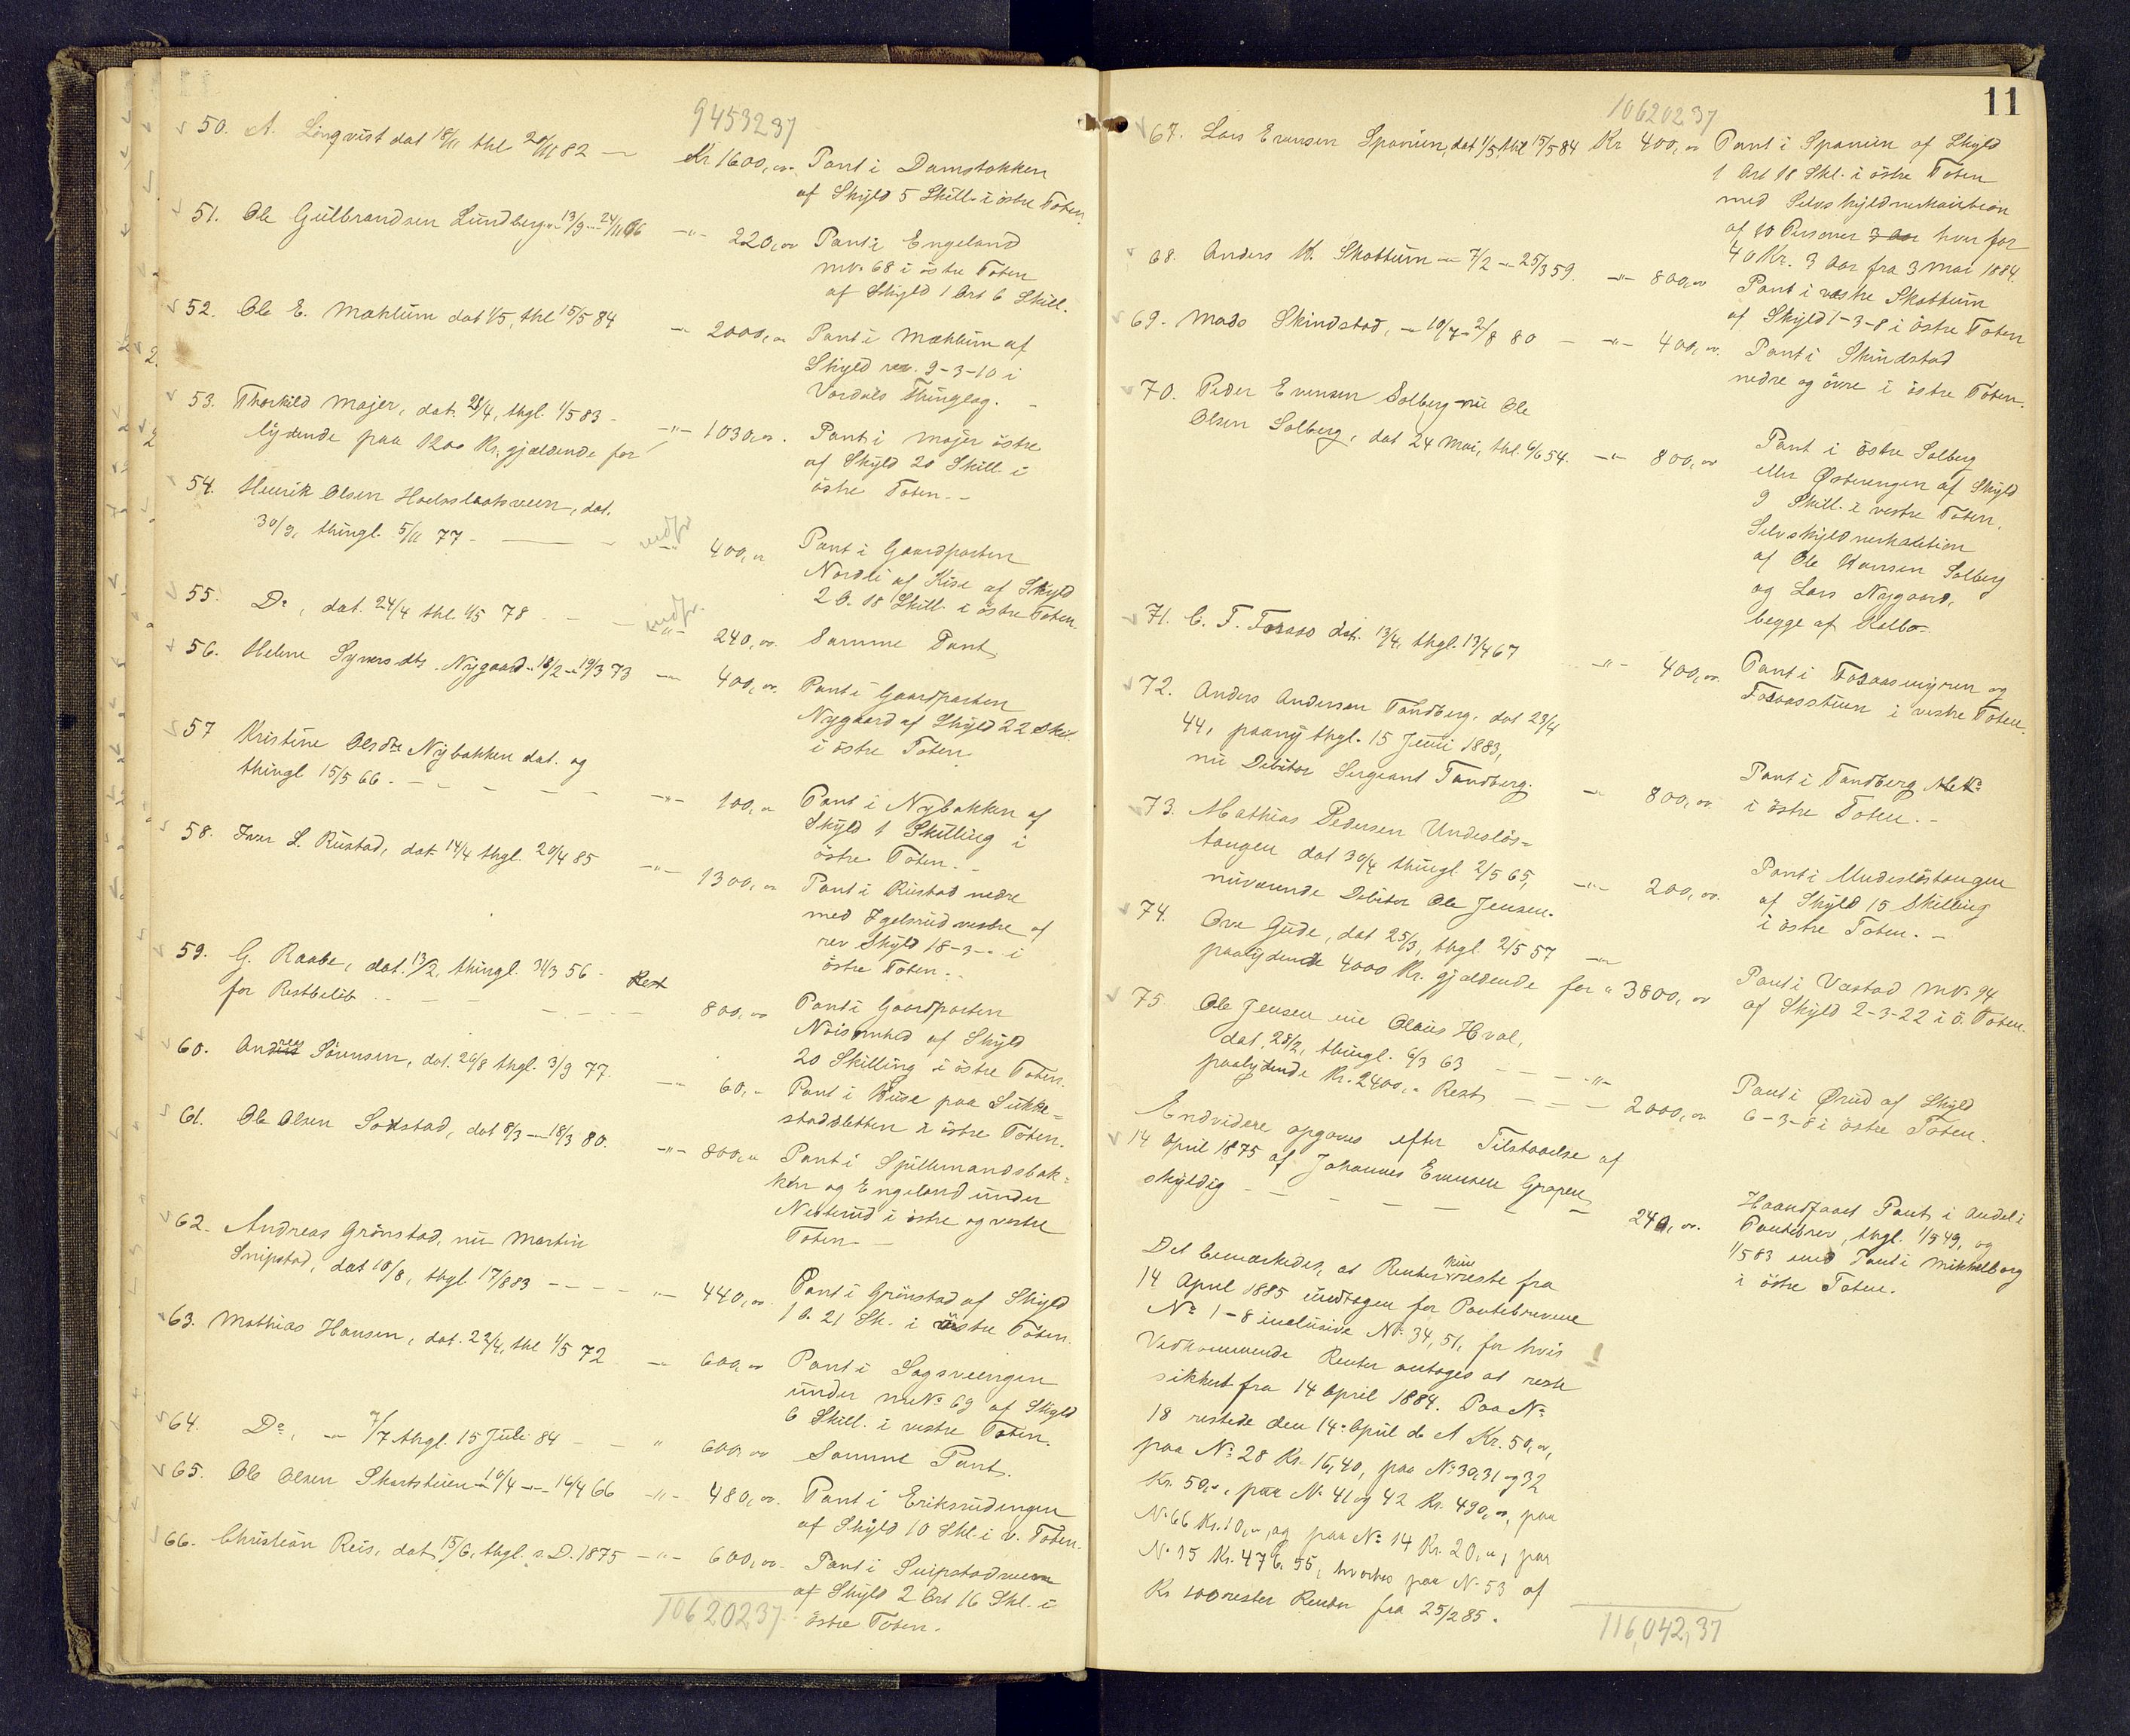 9453237
50. A. Lingvist dat 18/11 thl 20/11 82 — Kr 1600,00 Pant i Damstokken
af Skyld 5 Skill. i östre Toten.
51. Ole Gulbrandsen Lundberg -"- 13/9 -"- 24/11 66 -"- 220,00 Pant i Engeland
mno. 68 i östre Toten
af Skyld 1 Ort 6 Skill.
52. Ole E. Mæhlum dat 1/5, thl 15/5 84 -"- 2000,00 Pant i Mæhlum af
Skyld rev. 9-3-10 i
Vardals Thinglag. -
53. Thorkild Majer, dat. 28/4, thgl. 1/5 83 -
lydende paa 1200 Kr. gjældende for -"- 1030,00. Pant i Majer östre
af Skyld 20 Skill. i
östre Toten. -
54. Henrik Olsen Hoelsslaatsveen, dat.
30/9, thingl. 5/11 77 - — - -"- 400,00 Pant i Gaardparten
Nordli af Kise af Skyld
2 O. 18 Skill. i östre Toten.
55. Do, dat. 24/4 thl. 1/5 78 - - -"- 240,00. Samme Pant
56. Helene Syversdts. Nygaard -"- 18/2 -"- 19/3 73 -"- 400,00. Pant i Gaardparten
Nygaard af Skyld 22 Skil.
i östre Toten.
57 Kristine Olsdtr Nybakken dat. og
thingl 15/5 66 - - - - - -"- 100,00 Pant i Nybakken af
Skyld 1 Skilling i
östre Toten. -
58. Iver L. Rustad, dat 14/4 thgl. 20/4 85 -"- 1300,00 Pant i Rustad nedre
med Igelsrud vestre af
rev Skyld 18-3-- i
östre Toten. -
59. G. Raabe, dat. 13/2, thingl. 31/3 56 - Rest
for Restbelöb - - - - - 800,00 Pant i Gaardparten
Nöisomhed af Skyld
20 Skilling i östre Toten.
60. Andreas Sörensen, dat. 26/8 thgl. 3/9 77. -"- 60,- Pant i Huse paa Sukke-
stadsletten i östre Toten.
61. Ole Olsen Soxstad, dat 8/3 -"- 18/3 80. -"- 800,00 Pant i Spillemandsbak-
ken og Engeland under
Nesterud i östre og vestre
Toten. -
62. Andreas Grönstad, nu Martin
Snipstad, dat 10/8, thgl. 17/8 83 - - - -"- 440,00. Pant i Grönstad af Skyld
1 O. 21 Sk. i östre Toten.
63. Mathias Hansen, dat. 22/4, thl 1/5 72 -"- 600,00 Pant i Sagsveengen
under mno. 69 af Skyld
6 Skill. i vestre Toten.
64. Do, -"- 7/7 thgl. 15 Juli 84 - - " 600,00 Samme Pant.
65. Ole Olsen Skartstuen -"- 10/4 -"- 16/4 66 -"- 480,00. Pant i Eriksrudengen
af Skyld 10 Skl. i v. Toten.
66. Christian Reis, dat 15/6, thgl. s. D. 1875 -"- 600,00. Pant i Snipstadveen
af Skyld 2 Ort 16 Skl. i
östre Toten.
10620237
11
10620237
67. Lars Evensen Spanien, dat 1/5, thl 15/5 84 Kr 400,00 Pant i Spanien af Skyld
1 Ort 18 Skl. i östre Toten
med Selvskyldnerkaution
af 10 Personer hver for
40 Kr. 3 Aar fra 3 Mai 1884.
68. Anders H. Skattum -"- 7/2 -"- 25/3 59. -"- 800,00 Pant i vestre Skattum
af Skyld 1-3-8 i östre Toten
69. Mads Skindstad, -"- 10/7 -"- 2/8 80 - -"- 400,00. Pant i Skindstad
nedre og övre i östre Toten.
70. Peder Evensen Solberg nu Ole
Olsen Solberg, dat 24 Mai, thl. 6/6 54. -"- 800,00 Pant i östre Solberg
eller Østerengen af Skyld
9 Skill. i vestre Toten.
Selvskyldnerkaution
af Ole Hansen Solberg
og Lars Nygaard,
begge af Kolbo.
71. C. T. Fosaas dat. 13/4, thgl. 13/4 67 -"- 400,00. Pant i Fosaasmyren og
Fosaasstuen i vestre Toten.
72. Anders Andersen Tandberg, dat 23/4
44, paany thgl. 15 Juni 1883,
nu Debitor Sergeant Tandberg. -"- 800,00. Pant i Tandberg
i östre Toten. -
73. Mathias Pedersen Undeslös-
tangen dat 30/4 thingl. 2/5 65,
nuværende Debitor Ole Jensen. -"- 200,00. Pant i Undeslöstangen
af Skyld 15 Skilling
i östre Toten. -
74. Ove Gude, dat 25/3, thgl. 2/5 57 -"-
paalydende 4000 Kr. gjældende for " 3800,00 Pant i Vestad mno. 94
af Skyld 2-3-22 i ö. Toten.
75. Ole Jensen nu Olaus Hval,
dat. 28/2, thingl. 6/3 63 - - - -"-
paalydende Kr. 2400,- Rest - - - 2000,00 Pant i Ørud af Skyld
6-3-8 i östre Toten.
Endvidere opgaves efter Tilstaaelse af
14 April 1875 af Johannes Evensen Grapen
skyldig - - - - - - 240,00. Haandfaaet Pant i Andel i
Pantebrev, thgl. 1/5 49, og
1/5 83 med Pant i Mikkelborg
i östre Toten.
Det bemærkedes, at Renter kun reste fra
14 April 1885 undtagen for Pantebrevene
No 1-8 inclusive No. 34, 51, for hvis
Vedkommende Renter antages at reste
sikkert fra 14 April 1884. Paa No
18 restede den 14de April d. A Kr. 50,00,
paa No 28 Kr. 16,40, paa No 30, 31 og 32
Kr. 50,-, paa No 41 og 42 Kr. 490,00, paa
No 66 Kr. 10,-, og paa No 14 Kr. 20,-, paa
No 15 Kr. 476.55, hvorhos paa No 53 af
Kr 100 rester Renter fra 25/2 85.
116,042,37